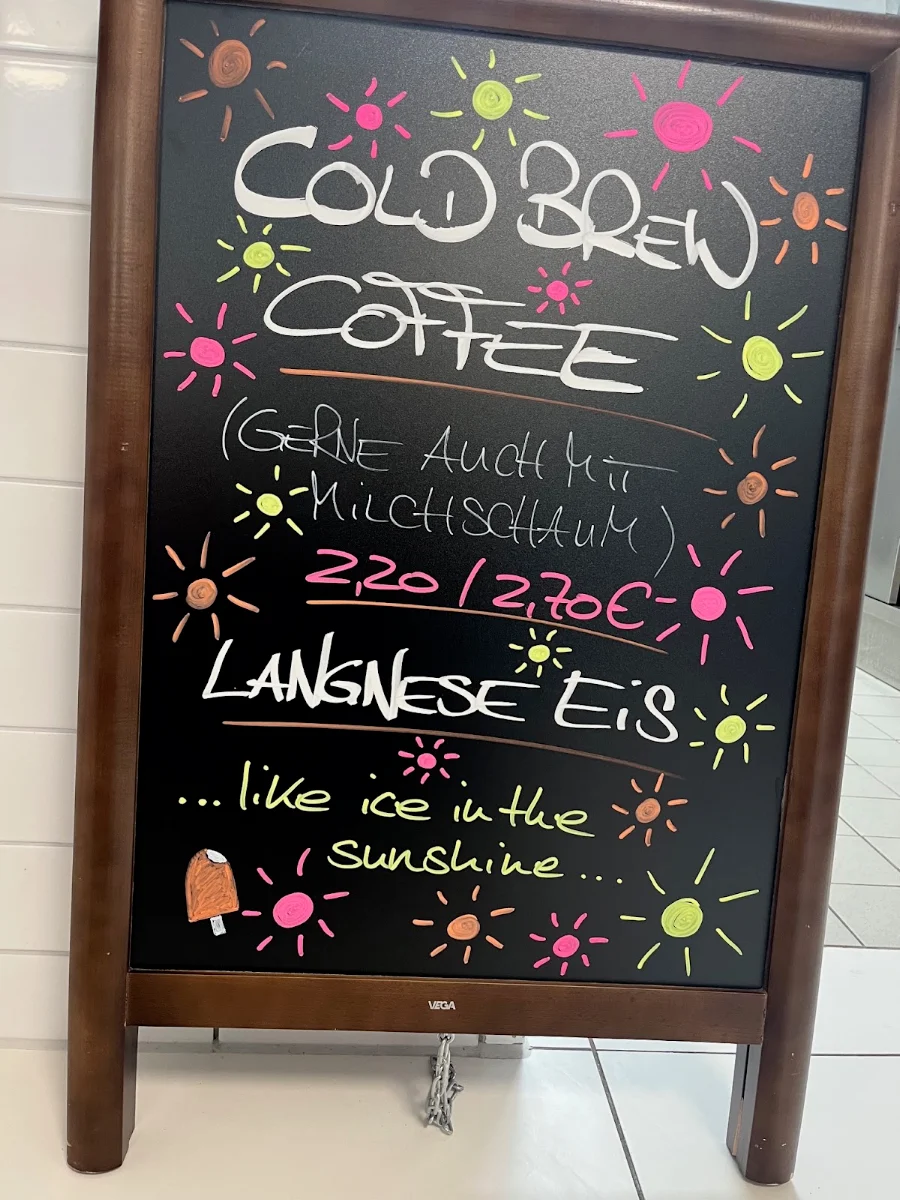 COLD BREW
COFFEE
(GERNE AUCH MIT
MILCHSCHAUM)
2,20 / 2,70€
LANGNESE EiS
...like ice in the
sunshine...
VEGA